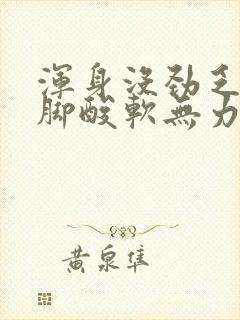 渾身沒勁乏
腳酸軟無力
黃泉隼